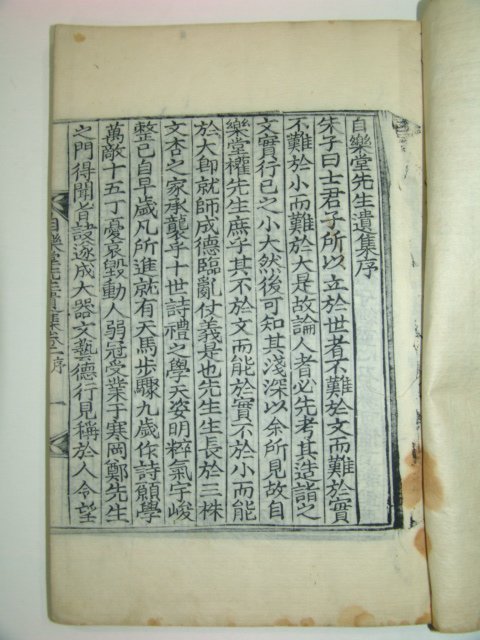 自樂堂先生遺集序
朱子曰士君子所以立於世者不難於文而難於實
不難於小而難於大是故論人者必先考其造詣之
文實行已之小大然後可知其淺深以余所見故自
樂堂權先生庶乎其不於文而能於實不於小而能
於大卽就師成德臨亂仗義是也先生生長於三株
文杏之家承襲乎十世詩禮之學天姿明粹氣宇峻
整已自早歲凡所進就有天馬步驟九歲作詩願學
萬敵十五丁憂哀毀動人弱冠受業于寒岡鄭先生
之門得聞旨訣遂成大器文藝德行見稱於人令望
自樂堂先生遺集卷一序 一